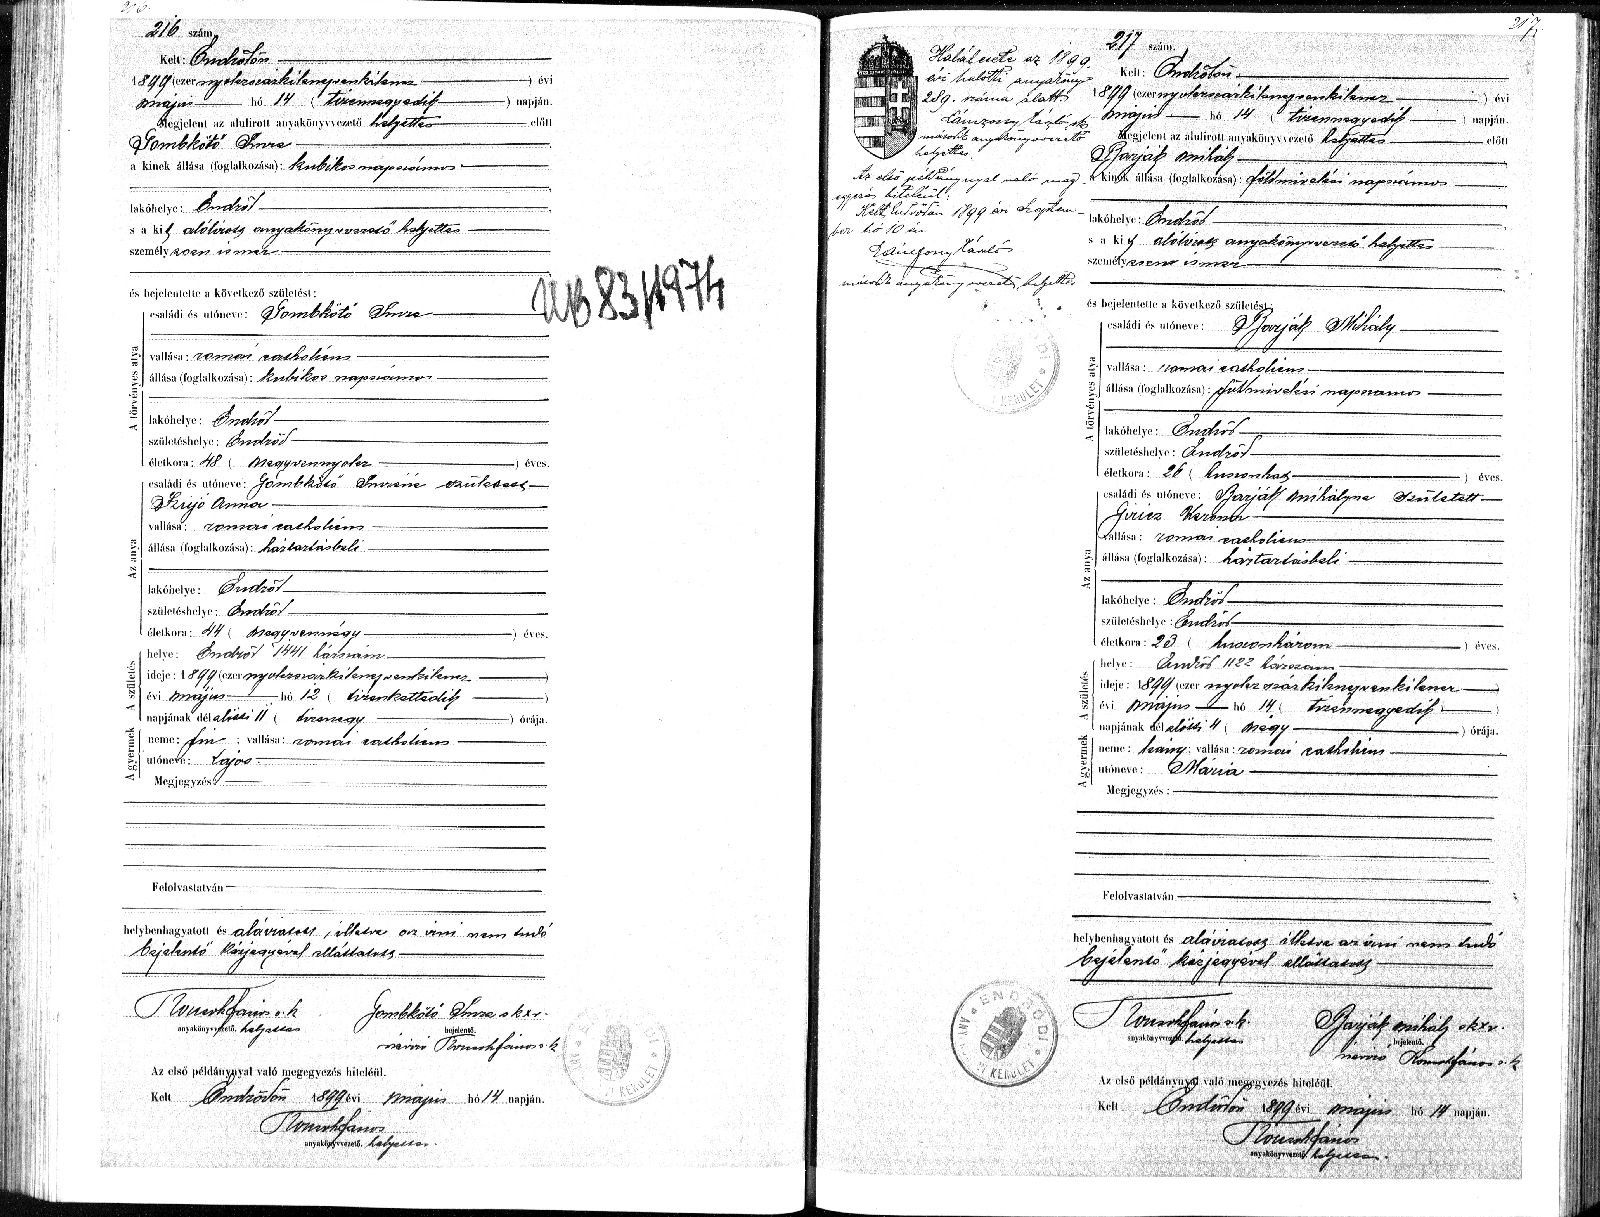 216
216 szám.
Kelt: Endrődön
1899 (ezer nyolczszázkilenczvenkilencz ) évi
május hó 14 ( tizennegyedik ) napján.
Megjelent az alulirott anyakönyvvezető helyettes előtt
Gombkötő Imre
a kinek állása (foglalkozása): kubikos napszámos
lakóhelye: Endrőd
s a kit alólirott anyakönyvvezető helyettes
személyesen ismer
és bejelentette a következő születést:
A törvényes atya
családi és utóneve: Gombkötő Imre
vallása: romai catholicus
állása (foglalkozása): kubikos napszámos
lakóhelye: Endrőd
születéshelye: Endrőd
életkora: 48 ( negyvennyolcz ) éves.
Az anya
családi és utóneve: Gombkötő Imréné született
Anna
vallása: romai catholicus
állása (foglalkozása): háztartásbeli
lakóhelye: Endrőd
születéshelye: Endrőd
életkora: 44 ( negyvennégy ) éves.
A születés
helye: Endrőd 1441 házszám
ideje: 1899 (ezer nyolczszázkilenczvenkilencz )
évi május hó 12 ( tizenkettedik )
napjának dél előtti 11 ( tizenegy ) órája.
A gyermek
neme: fiu ; vallása: romai catholicus
utóneve: Lajos
Megjegyzés:
UB 83/1974
Felolvastatván
helybenhagyatott és aláiratott, illetve az irni nem tudó
bejelentő kézjegyével elláttatott
anyakönyvvezető. helyettes
Gombkötő Imre s k x v.
bejelentő.
névíró
Az első példánynyal való megegyezés hiteléül.
Kelt Endrődön 1899 évi május hó 14 napján.
anyakönyvvezető. helyettes.
217
217 szám.
Halálesete az 1899.
évi halotti anyakönyv
289. száma alatt
László sk
másodk anyakönyvvezető
helyettes.
Az első példánynyal való meg-
egyezés hiteléül:
Kelt Endrődön 1899 évi Szeptem-
ber hó 10 én
László
másodk anyakönyvvezető helyettes
Kelt: Endrődön
1899 (ezer nyolczszázkilenczvenkilencz ) évi
május hó 14 ( tizennegyedik ) napján.
Megjelent az alulirott anyakönyvvezető helyettes előtt
Barják Mihály
a kinek állása (foglalkozása): földmivelési napszámos
lakóhelye: Endrőd
s a kit alólirott anyakönyvvezető helyettes
személyesen ismer
és bejelentette a következő születést:
A törvényes atya
családi és utóneve: Barják Mihály
vallása: romai catholicus
állása (foglalkozása): földmivelési napszamos
lakóhelye: Endrőd
születéshelye: Endrőd
életkora: 26 ( huszonhat ) éves.
Az anya
családi és utóneve: Barják Mihályné született
Giricz Verona
vallása: romai catholicus
állása (foglalkozása): háztartásbeli
lakóhelye: Endrőd
születéshelye: Endrőd
életkora: 23 ( huszonhárom ) éves.
A születés
helye: Endrőd 1122 házszam
ideje: 1899 (ezer nyolczszázkilenczvenkilencz )
évi május hó 14 ( tizennegyedik )
napjának dél előtti 4 ( négy ) órája.
A gyermek
neme: leány; vallása: romai catholicus
utóneve: Mária
Megjegyzés:
Felolvastatván
helybenhagyatott és aláiratott illetve az irni nem tudó
bejelentő kézjegyével elláttatott
ENDRŐDI
KERÜLET
anyakönyvvezető. helyettes
Barják Mihály s k x v.
bejelentő.
névíró
Az első példánynyal való megegyezés hiteléül.
Kelt Endrődön 1899 évi május hó 14 napján.
anyakönyvvezető helyettes.